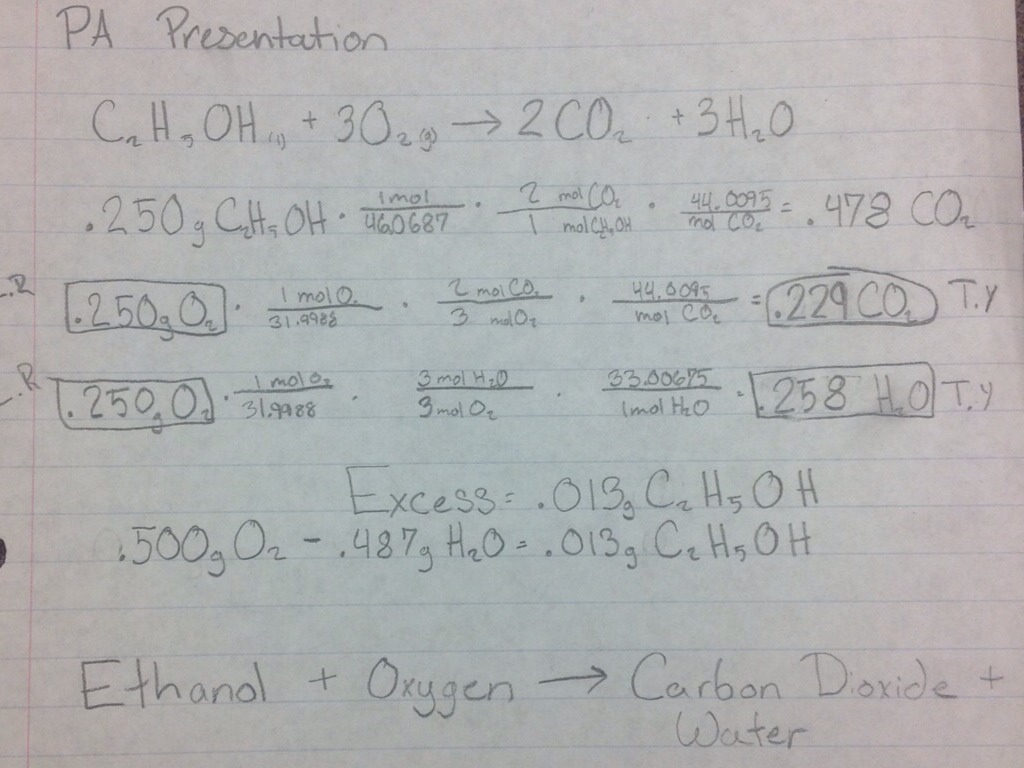 PA Presentation
C₂H₅OH(l) + 3O₂(g) → 2CO₂ + 3H₂O
.250g C₂H₅OH · 1mol/46.0687 · 2 molCO₂/1 molC₂H₅OH · 44.0095/mol CO₂ = .478 CO₂
L.R .250g O₂ · 1 molO₂/31.9988 · 2 molCO₂/3 molO₂ · 44.0095/mol CO₂ = .229 CO₂ T.Y
L.R .250g O₂ · 1 molO₂/31.9988 · 3 mol H₂O/3 mol O₂ · 33.00675/1mol H₂O = .258 H₂O T.Y
Excess = .013g C₂H₅OH
.500g O₂ - .487g H₂O = .013g C₂H₅OH
Ethanol + Oxygen → Carbon Dioxide +
Water